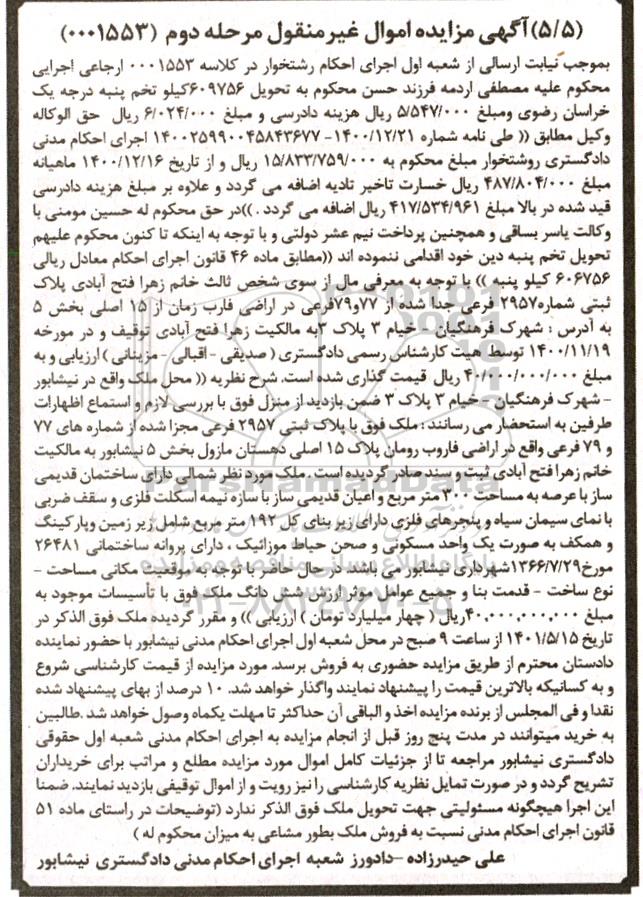 (۵/۵) آگهی مزایده اموال غیر منقول مرحله دوم (۰۰۰۱۵۵۳)
بموجب نیابت ارسالی از شعبه اول اجرای احکام رشتخوار در کلاسه ۰۰۰۱۵۵۳ ارجاعی اجرایی
محکوم علیه مصطفی اردمه فرزند حسن محکوم به تحویل ۶۰۹۷۵۶کیلو تخم پنبه درجه یک
خراسان رضوی ومبلغ ۵/۵۴۷/۰۰۰ ریال هزینه دادرسی و مبلغ ۶/۰۲۴/۰۰۰ ریال حق الوکاله
وکیل مطابق (( طی نامه شماره ۱۴۰۰/۱۲/۲۱- ۱۴۰۰۲۵۹۹۰۰۴۵۸۴۳۶۷۷ اجرای احکام مدنی
دادگستری روشتخوار مبلغ محکوم به ۱۵/۸۳۳/۷۵۹/۰۰۰ ریال و از تاریخ ۱۴۰۰/۱۲/۱۶ ماهیانه
مبلغ ۴۸۷/۸۰۴/۰۰۰ ریال خسارت تاخیر تادیه اضافه می گردد و علاوه بر مبلغ هزینه دادرسی
قید شده در بالا مبلغ ۴۱۷/۵۳۴/۹۶۱ ریال اضافه می گردد .))در حق محکوم له حسین مومنی با
وکالت یاسر بساقی و همچنین پرداخت نیم عشر دولتی و با توجه به اینکه تا کنون محکوم علیهم
تحویل تخم پنبه دین خود اقدامی ننموده اند ((مطابق ماده ۴۶ قانون اجرای احکام معادل ریالی
۶۰۶۷۵۶ کیلو پنبه )) با توجه به معرفی مال از سوی شخص ثالث خانم زهرا فتح آبادی پلاک
ثبتی شماره۲۹۵۷ فرعی جدا شده از ۷۷و۷۹فرعی در اراضی فارب زمان از ۱۵ اصلی بخش ۵
به آدرس : شهرک فرهنگیان - خیام ۳ پلاک ۳به مالکیت زهرا فتح آبادی توقیف و در مورخه
۱۴۰۰/۱۱/۱۹ توسط هیت کارشناس رسمی دادگستری ( صدیقی - اقبالی - مزینانی ) ارزیابی و به
مبلغ ۴۰/۰۰۰/۰۰۰/۰۰۰ ریال قیمت گذاری شده است. شرح نظریه (( محل ملک واقع در نیشابور
- شهرک فرهنگیان - خیام ۳ پلاک ۳ ضمن بازدید از منزل فوق با بررسی لازم و استماع اظهارات
طرفین به استحضار می رسانند : ملک فوق با پلاک ثبتی ۲۹۵۷ فرعی مجزا شده از شماره های ۷۷
و ۷۹ فرعی واقع در اراضی فاروب رومان پلاک ۱۵ اصلی دهستان مازول بخش ۵ نیشابور به مالکیت
خانم زهرا فتح آبادی ثبت و سند صادر گردیده است . ملک مورد نظر شمالی دارای ساختمان قدیمی
ساز با عرصه به مساحت ۳۰۰ متر مربع و اعیان قدیمی ساز با سازه نیمه اسکلت فلزی و سقف ضربی
با نمای سیمان سیاه و پنجرهای فلزی دارای زیر بنای کل ۱۹۲ متر مربع شامل زیر زمین و پارکینگ
و همکف به صورت یک واحد مسکونی و صحن حیاط موزائیک ، دارای پروانه ساختمانی ۲۶۴۸۱
مورخ۱۳۶۶/۷/۲۹شهرداری نیشابور می باشد. در حال حاضر با توجه به موقعیت مکانی مساحت -
نوع ساخت - قدمت بنا و جمیع عوامل موثر ارزش شش دانگ ملک فوق با تأسیسات موجود به
مبلغ ۴۰,۰۰۰,۰۰۰,۰۰۰ریال ( چهار میلیارد تومان ) ارزیابی )) و مقرر گردیده ملک فوق الذکر در
تاریخ ۱۴۰۱/۵/۱۵ از ساعت ۹ صبح در محل شعبه اول اجرای احکام مدنی نیشابور با حضور نماینده
دادستان محترم از طریق مزایده حضوری به فروش برسد. مورد مزایده از قیمت کارشناسی شروع
و به کسانیکه بالاترین قیمت را پیشنهاد نمایند واگذار خواهد شد. ۱۰ درصد از بهای پیشنهاد شده
نقدا و فی المجلس از برنده مزایده اخذ و الباقی آن حداکثر تا مهلت یکماه وصول خواهد شد .طالبین
به خرید میتوانند در مدت پنج روز قبل از انجام مزایده به اجرای احکام مدنی شعبه اول حقوقی
دادگستری نیشابور مراجعه تا از جزئیات کامل اموال مورد مزایده مطلع و مراتب برای خریداران
تشریح گردد و در صورت تمایل نظریه کارشناسی را نیز رویت و از اموال توقیفی بازدید نمایند. ضمنا
این اجرا هیچگونه مسئولیتی جهت تحویل ملک فوق الذکر ندارد (توضیحات در راستای ماده ۵۱
قانون اجرای احکام مدنی نسبت به فروش ملک بطور مشاعی به میزان محکوم له )
علی حیدرزاده -دادورز شعبه اجرای احکام مدنی دادگستری نیشابور